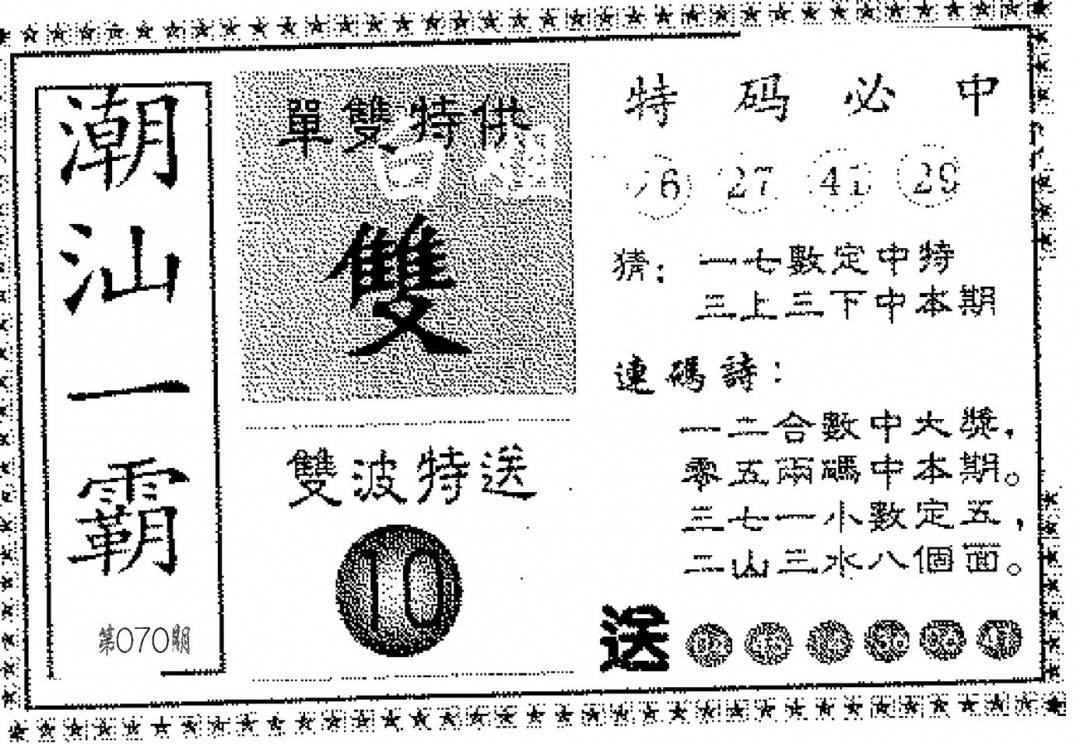 潮汕一霸
第070期
單雙特供
白姐
雙
雙波特送
10
特码必中
27 41 29
猜：一七數定中特
三上三下中本期
連碼詩：
一二合數中大獎，
零五兩碼中本期。
三七一小數定五，
二山三水八個面。
送 02 45 14 36 06 41